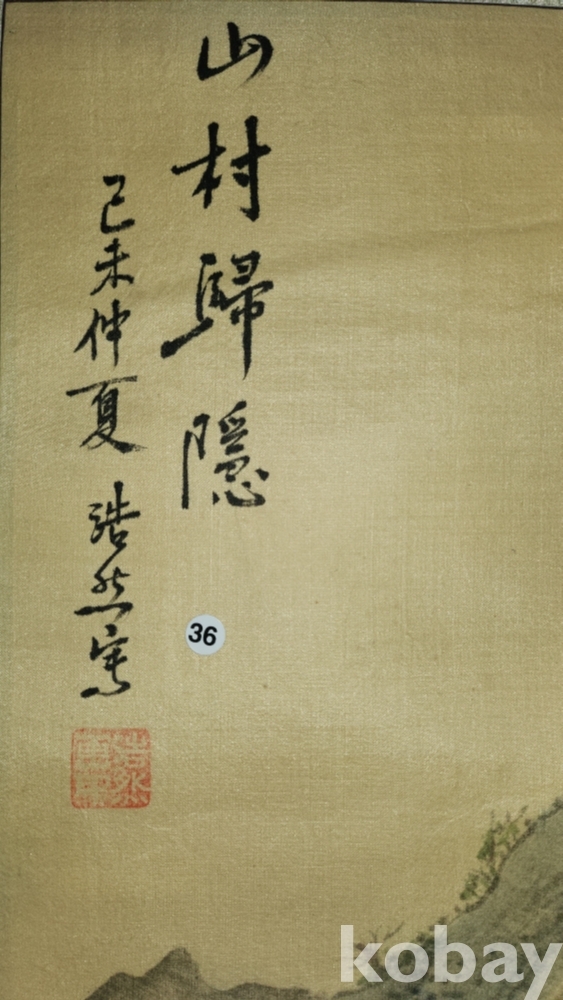 山村歸隱
己未仲夏 浩然寫
36
kobay